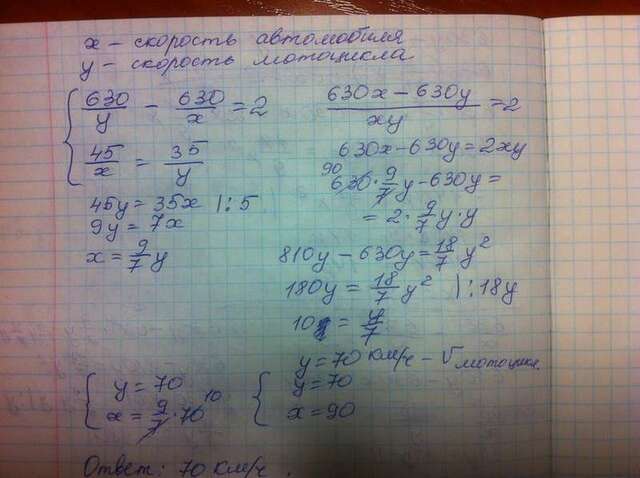 x – скорость автомобиля
y – скорость мотоцикла
630/y − 630/x = 2
45/x = 35/y
45y = 35x |: 5
9y = 7x
x = 9/7 y
(630x − 630y)/xy = 2
630x − 630y = 2xy
90
630 · 9/7 y − 630y =
= 2 · 9/7 y · y
810y − 630y = 18/7 y²
180y = 18/7 y² |: 18y
10 = y/7
y = 70 км/ч – V мотоцикл.
{ y = 70
x = 9/7 · 70 10
{ y = 70
x = 90
Ответ: 70 км/ч.